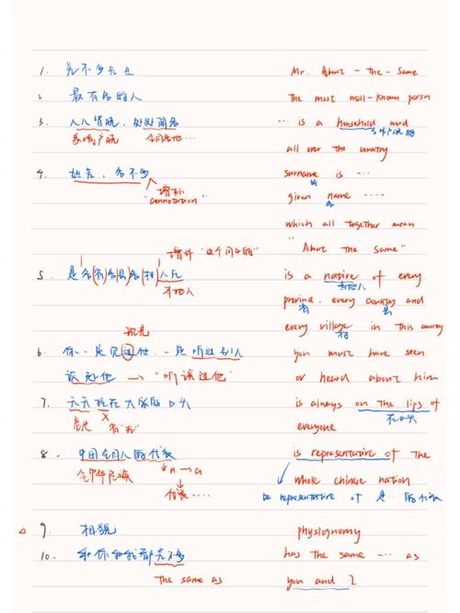 1. 差不多先生 Mr. About-the-Same
2. 最有名的人 The most well-known person
3. 人人皆晓，处处闻名 ... is a household word
家喻户晓
all over the country
4. 姓差，名不多 surname is ...
增补 "connotation"
given name ....
which all together mean
"About the same"
增补 "这个国家的"
5. 是各(省)各县各(村)人氏 is a native of every
本地人
province, every county and
省 县
every village in this country
村
6. 你一定见过他，一定听过别人 you must have seen
谈起他 → "听说过他" or heard about him
7. 天天挂在大家的口头 is always on the lips of
everyone
8. 中国全国人的代表 is representative of the
全中华民族 n → a
whole chinese nation
代表 ....
be representative of 是...的代表
9. 相貌 physiognomy
10. 和你和我都差不多 has the same ... as
the same as you and I